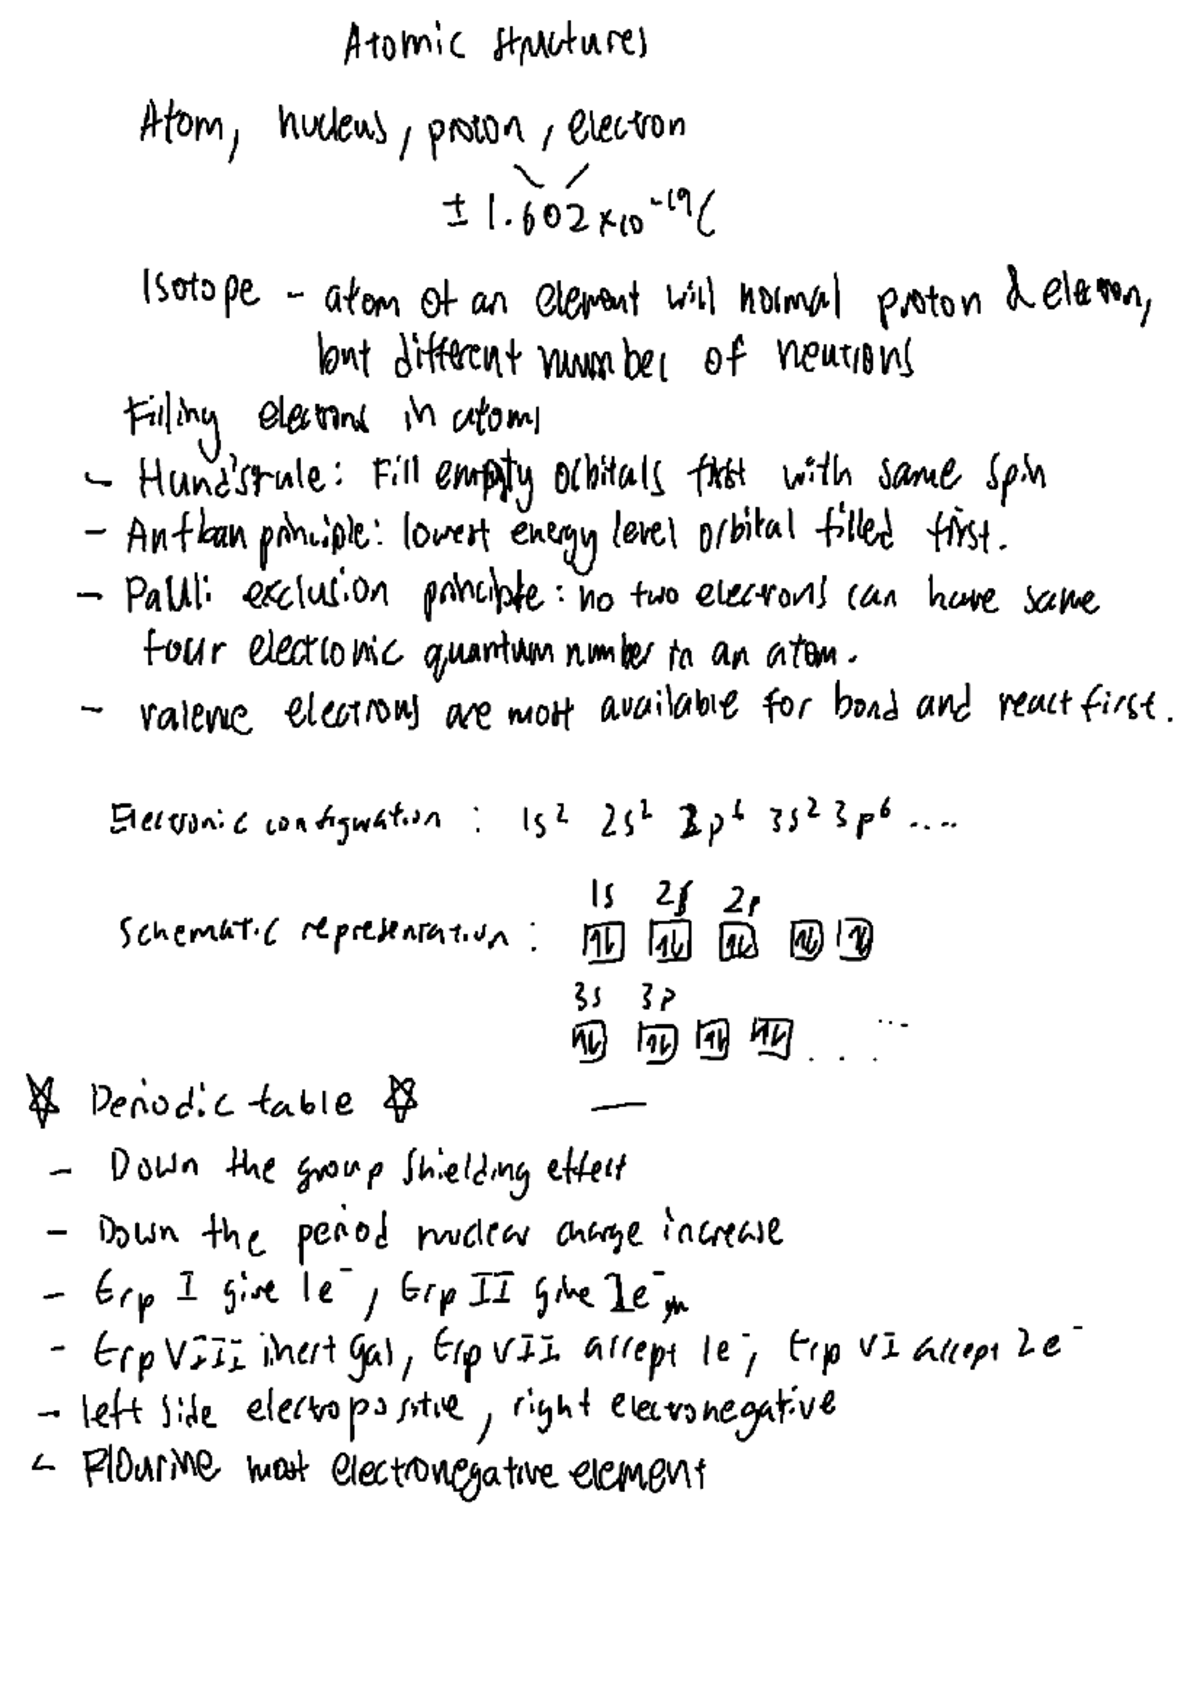 Atomic structures
Atom, nucleus, proton, electron
± 1.602 ×10⁻¹⁹C
Isotope - atom of an element will normal proton & eletron,
but different number of neutrons
Filling electrons in atoms
- Hund's rule: Fill empty orbitals first with same spin
- Aufbau principle: lowest energy level orbital filled first.
- Pauli exclusion principle: no two electrons can have same
four electronic quantum number in an atom.
- valence electrons are most available for bond and react first.
Electronic configuration : 1s² 2s² 2p⁶ 3s² 3p⁶ ....
1s 2s 2p
Schematic representation : ⥮ ⥮ ⥮ ⥮ ⥮
3s 3p
⥮ ⥮ ⥮ ⥮ . . . ...
☆ Periodic table ☆
- Down the group shielding effect
- Down the period nuclear charge increase
- Grp I give 1e⁻, Grp II give 2e⁻
- Grp VIII inert gas, Grp VII accept 1e⁻, Grp VI accept 2e⁻
- left side electropositive, right electronegative
- Flourine most electronegative element